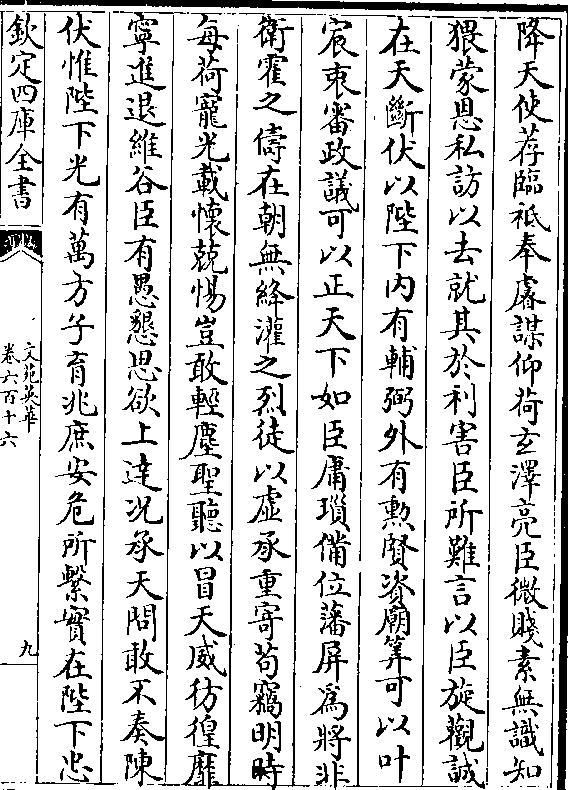 降天使荐臨祗奉睿謀仰荷玄澤亮臣微賤素無識知
猥蒙恩私訪以去就其於利害臣所難言以臣旋觀誠
在天斷伏以陛下內有輔弼外有勲賢資廟筭可以叶
宸衷審政議可以正天下如臣庸瑣備位藩屏為將非
衛霍之儔在朝無絳灌之烈徒以虛承重寄苟竊明時
每荷寵光載懷兢惕豈敢輕塵聖聽以冒天威彷徨靡
寧進退維谷臣有愚懇思欲上達况承天問敢不奏陳
伏惟陛下光有萬方子育兆庶安危所繫實在陛下忠
欽定四庫全書
文苑英華
卷六百十六
九